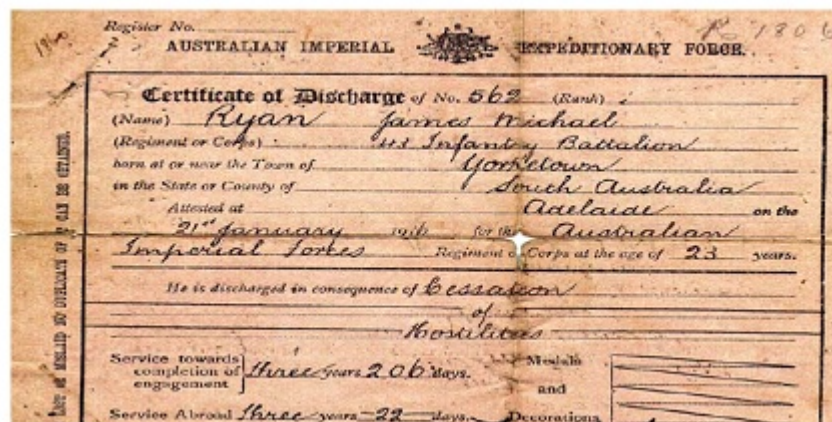 Register No.
1806
AUSTRALIAN IMPERIAL EXPEDITIONARY FORCE.
Certificate of Discharge of No. 562 (Rank)
(Name) Ryan James Michael
(Regiment or Corps) 43 Infantry Battalion
born at or near the Town of Yorketown
in the State or County of South Australia
Attested at Adelaide on the
21st January 1916 for the Australian
Imperial Forces Regiment or Corps at the age of 23 years.
He is discharged in consequence of Cessation
of
Hostilities
Service towards
completion of
engagement } three years 206 days.
Medals
and
Decorations
Service Abroad three years 22 days.
LOST OR MISLAID NO DUPLICATE OF IT CAN BE OBTAINED.